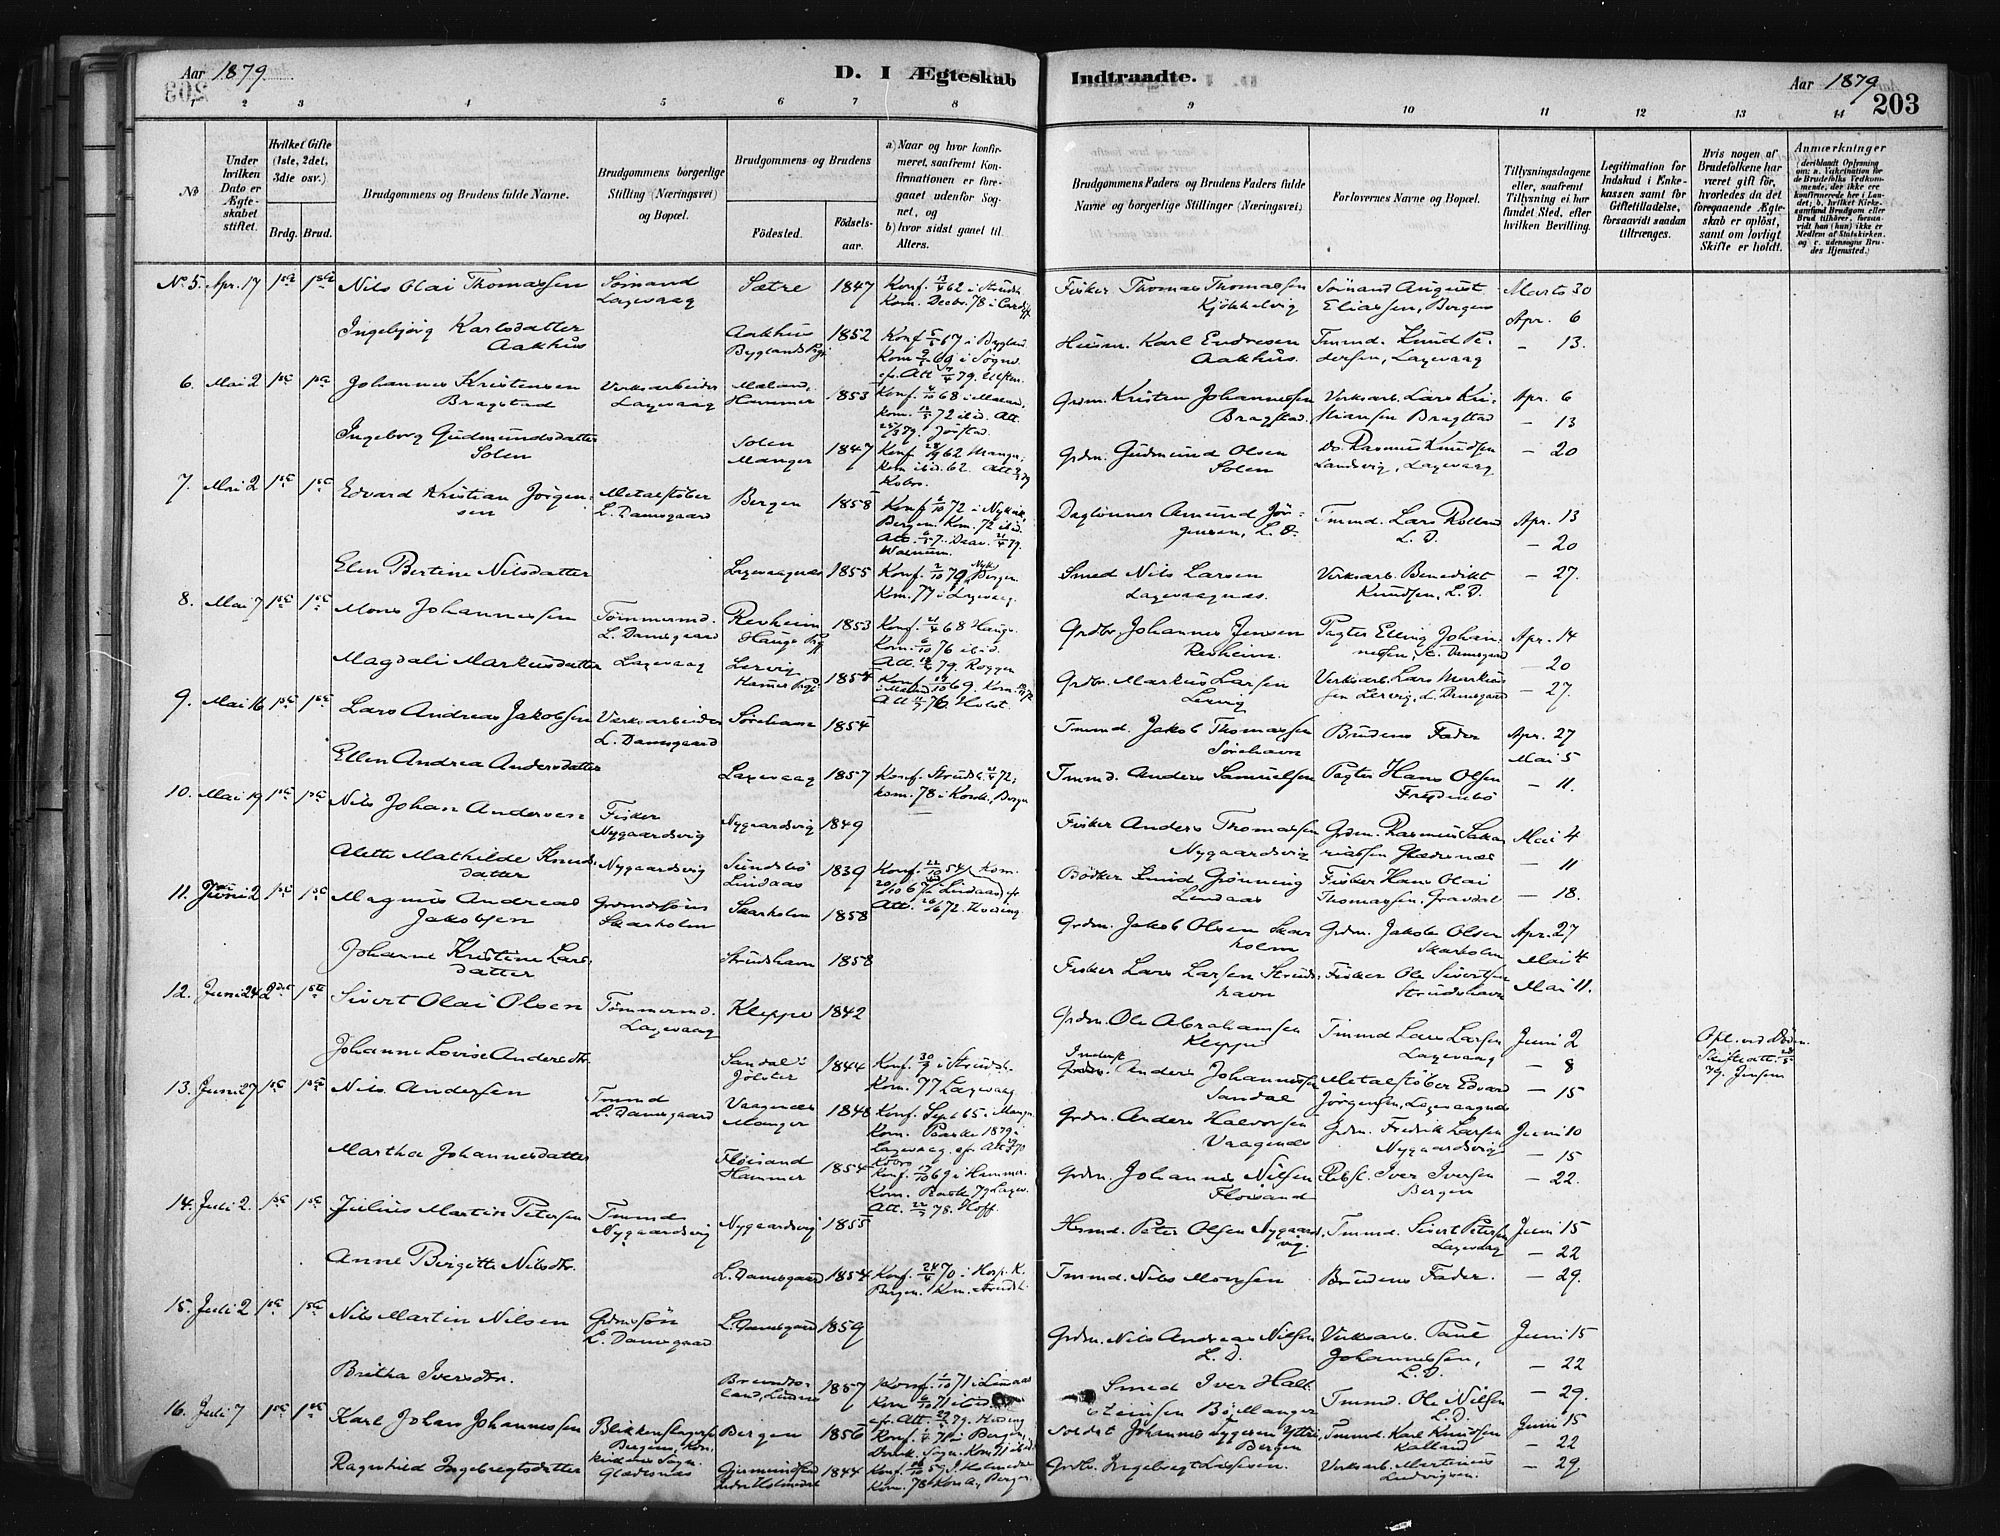 Aar 1879
D. I Ægteskab Indtraadte.
Aar 1879
203
1 2 3 4 5 6 7 8 9 10 11 12 13 14
No
Under hvilken Dato er Ægteskabet stiftet.
Hvilket Gifte (1ste, 2det, 3die osv.)
Brdg. Brud.
Brudgommens og Brudens fulde Navne.
Brudgommens borgerlige Stilling (Næringsvei) og Bopæl.
Brudgommens og Brudens
Fødested.
Fødselsaar.
a) Naar og hvor konfirmeret, saafremt Konfirmationen er foregaaet udenfor Sognet, og
b) hvor sidst gaaet til Alters.
Brudgommens Faders og Brudens Faders fulde Navne og borgerlige Stillinger (Næringsvei)
Forlovernes Navne og Bopæl.
Tillysningsdagene eller, saafremt Tillysning ei har fundet Sted, efter hvilken Bevilling.
Legitimation for Indskud i Enkekassen samt for Giftetilladelse, forsaavidt saadan tiltrænges.
Hvis nogen af Brudefolkene har været gift før, hvorledes da det foregaaende Ægteskab er opløst, samt om lovligt Skifte er holdt.
Anmærkninger
No 5. Apr. 17 1ste 1ste Nils Olai Thomassen Sømand Laxevaag Sætre 1847 Konf. 13/4 62 i Strudsh. Kom. Decbr. 78 i Cardiff Fisker Thomas Thomassen Kjøkkelvig Sømand August Eliassen, Bergen Marts 30
Apr. 6
Ingebjørg Karlsdatter Aakhus Aakhus Byglands Pgj 1852 Konf 67 i Bygland Kom 69 i Søgne Husm. Karl Endresen Aakhus Tmmd. Knud Pedersen, Laxevaag - 13.
6. Mai 2 1ste 1ste Johannes Kristensen Bragstad Verksarbeider Laxevaag Mæland, Hammer 1853 Konf. 4/10 68 i Mæland, Kom. 72 ibid. Att. 25/3 79. Jørstad. Grdm. Kristen Johannessen Bragstad Verksarb. Lars Kristiansen Bragstad Apr. 6
- 13
Ingeborg Gudmundsdatter Solen Solen Manger 1847 Konf 62 Manger, Kom ibid. 62. Grdm. Gudmund Olsen Solen Do. Rasmus Knudsen Landsvig, Laxevaag - 20
7. Mai 2 1ste 1ste Edvard Kristian Jørgensen Metalstøber L. Damsgaard Bergen 1858 Konf 6/10 72 i Nykirk. Bergen. Kom. 72 ibid. Daglønner Amund Jørgensen, L. D. Tmmd. Lars Rolland L. D. Apr. 13
- 20
Elen Bertine Nilsdatter Laxevaagnæs 1855 Konf. 2/10 70 Nyk. Bergen. Kom. 77 i Laxevaag. Smed Nils Larsen Laxevaagnæs. Verksarb. Benedikt Knudsen, L. D. - 27.
8. Mai 7 1ste 1ste Mons Johannessen Tømmermd. L. Damsgaard Revheim Haugs Pgj 1853 Konf. 21/4 68 Haugs. Kom. 6/10 76 ibid. Grdbr. Johannes Jensen Revheim. Pagter Elling Johannessen, St. Damsgaard Apr. 14
- 20
Magdali Markusdatter Laxevaag Lervig Hamer Pgj 1854 Konf. 69. Kom. i Mæland Holst. Grdbr. Markus Larsen Lervig Verksarb. Lars Markussen Lervig, L. Damsgaard - 27.
9. Mai 16 1ste 1ste Lars Andreas Jakobsen Verksarbeider L. Damsgaard Sørehavn 1854 Tmmd. Jakob Thomassen Sørehavn Brudens Fader Apr. 27
Mai 5
Ellen Andrea Andersdatter Laxevaag 1857 Konf. Strudsh. 21/4 72; Kom. 78 i Korsk., Bergen Tmmd. Anders Samuelsen Pagter Hans Olsen Frydenbø - 11.
10. Mai 19 1ste 1ste Nils Johan Andersen Fisker Nygaardsvig Nygaardsvig 1849 Fisker Anders Thomassen Nygaardsvig Grdm. Rasmus Sakariassen Gladesnæs Mai 4
- 11
Alette Mathilde Knudsdatter Nygaardsvig Sundsbø Lindaas 1839 Konf. 22/10 54, Kom. 20/10 67 i Lindaas, Att. 26/6 72. Hviding. Bødker Knud Grønning Lindaas Fisker Hans Olai Thomassen, Gravdal - 18.
11. Juni 2 1ste 1ste Magnus Andreas Jakobsen Grdmdssøn Skarholm Skarholm 1858 Grdm. Jakob Olsen Skarholm Grdm. Jakob Olsen Skarholm Apr. 27
Mai 4
Johanne Kristine Larsdatter Strudshavn 1858 Fisker Lars Larsen Strudshavn Fisker Ole Sivertsen Strudshavn Mai 11.
12. Juni 24 2det 1ste Sivert Olai Olsen Tømmermd. Laxevaag Kleppe 1842 Grdm. Ole Abrahamsen Kleppe Tmmd Lars Larsen Laxevaag Juni 2 Opl. ved Døden. Skifteatt. 79. Jensen
- 8
Johanne Lovise Andersdtr. Sandal i Jølster 1844 Konf. 30/9 i Strudsh. Kom. 77 Laxevaag Inderst Anders Johannessen Sandal Metalstøber Edvard Jørgensen, Laxevaagnæs - 15
13. Juni 27 1ste 1ste Nils Andersen Tmmd L. Damsgaard Vaagenæs Manger 1848 Konf. Sept 65 i Manger. Kom. Paaske 1879 i Laxevaag. Grdm. Anders Halvorsen Vaagenæs Grdm. Fredrik Larsen Nygaardsvig Juni 10
- 15
Martha Johannesdatter Fløisand Hammer 1854 Konf. 69 i Hammer. Kom. Paaske 79 Laxev. Att. 78. Hoff. Grdm. Johannes Nilsen Floisand Rebsl. Iver Iversen Bergen - 22.
14. Juli 2. 1ste 1ste Julius Martin Petersen Tmmd Nygaardsvig Nygaardsvig 1855 Husmd. Peter Olsen Nygaardsvig. Tmmd. Sivert Petersen, Laxevaag Juni 15
- 22
Anne Birgitte Nilsdtr. L. Damsgaard 1854 Konf. 24/4 70 i Hosp. K. Bergen. Kom. Strudsh. Tmmd. Nils Monsen Brudens Fader. - 29.
15. Juli 2 1ste 1ste Nils Martin Nilsen Grdmssøn L. Damsgaard L. Damsgaard 1859 Grdm. Nils Andreas Nilsen L. D. Verksarb. Paul Johannessen, L. D. Juni 15
- 22
Britha Iversdtr. 1857 Konf. 1/10 71 i Lindaas Kom 71 ibid. Smed Iver Halsteinsen Bø Manger Tmmd. Ole Nilsen L. D. - 29.
16. Juli 7 1ste 1ste Karl Johan Johannessen Blikkenslager Bergen 1856 Konf. 71 i Bergen, Domk. Sogn. Kom 71 ibid. Soldat Johannes Bergen Tmmd. Karl Knudsen Kalland Juni 15
- 22
Ragnhild Ingebregtsdatter Gladesnæs Gjermundstad Indre Holmedal 1844 Konf. 59 I. Holmedal Kom. 78 Bergen Grdbr. Ingebregt Verksarb. Martinus Ludvigsen. - 29